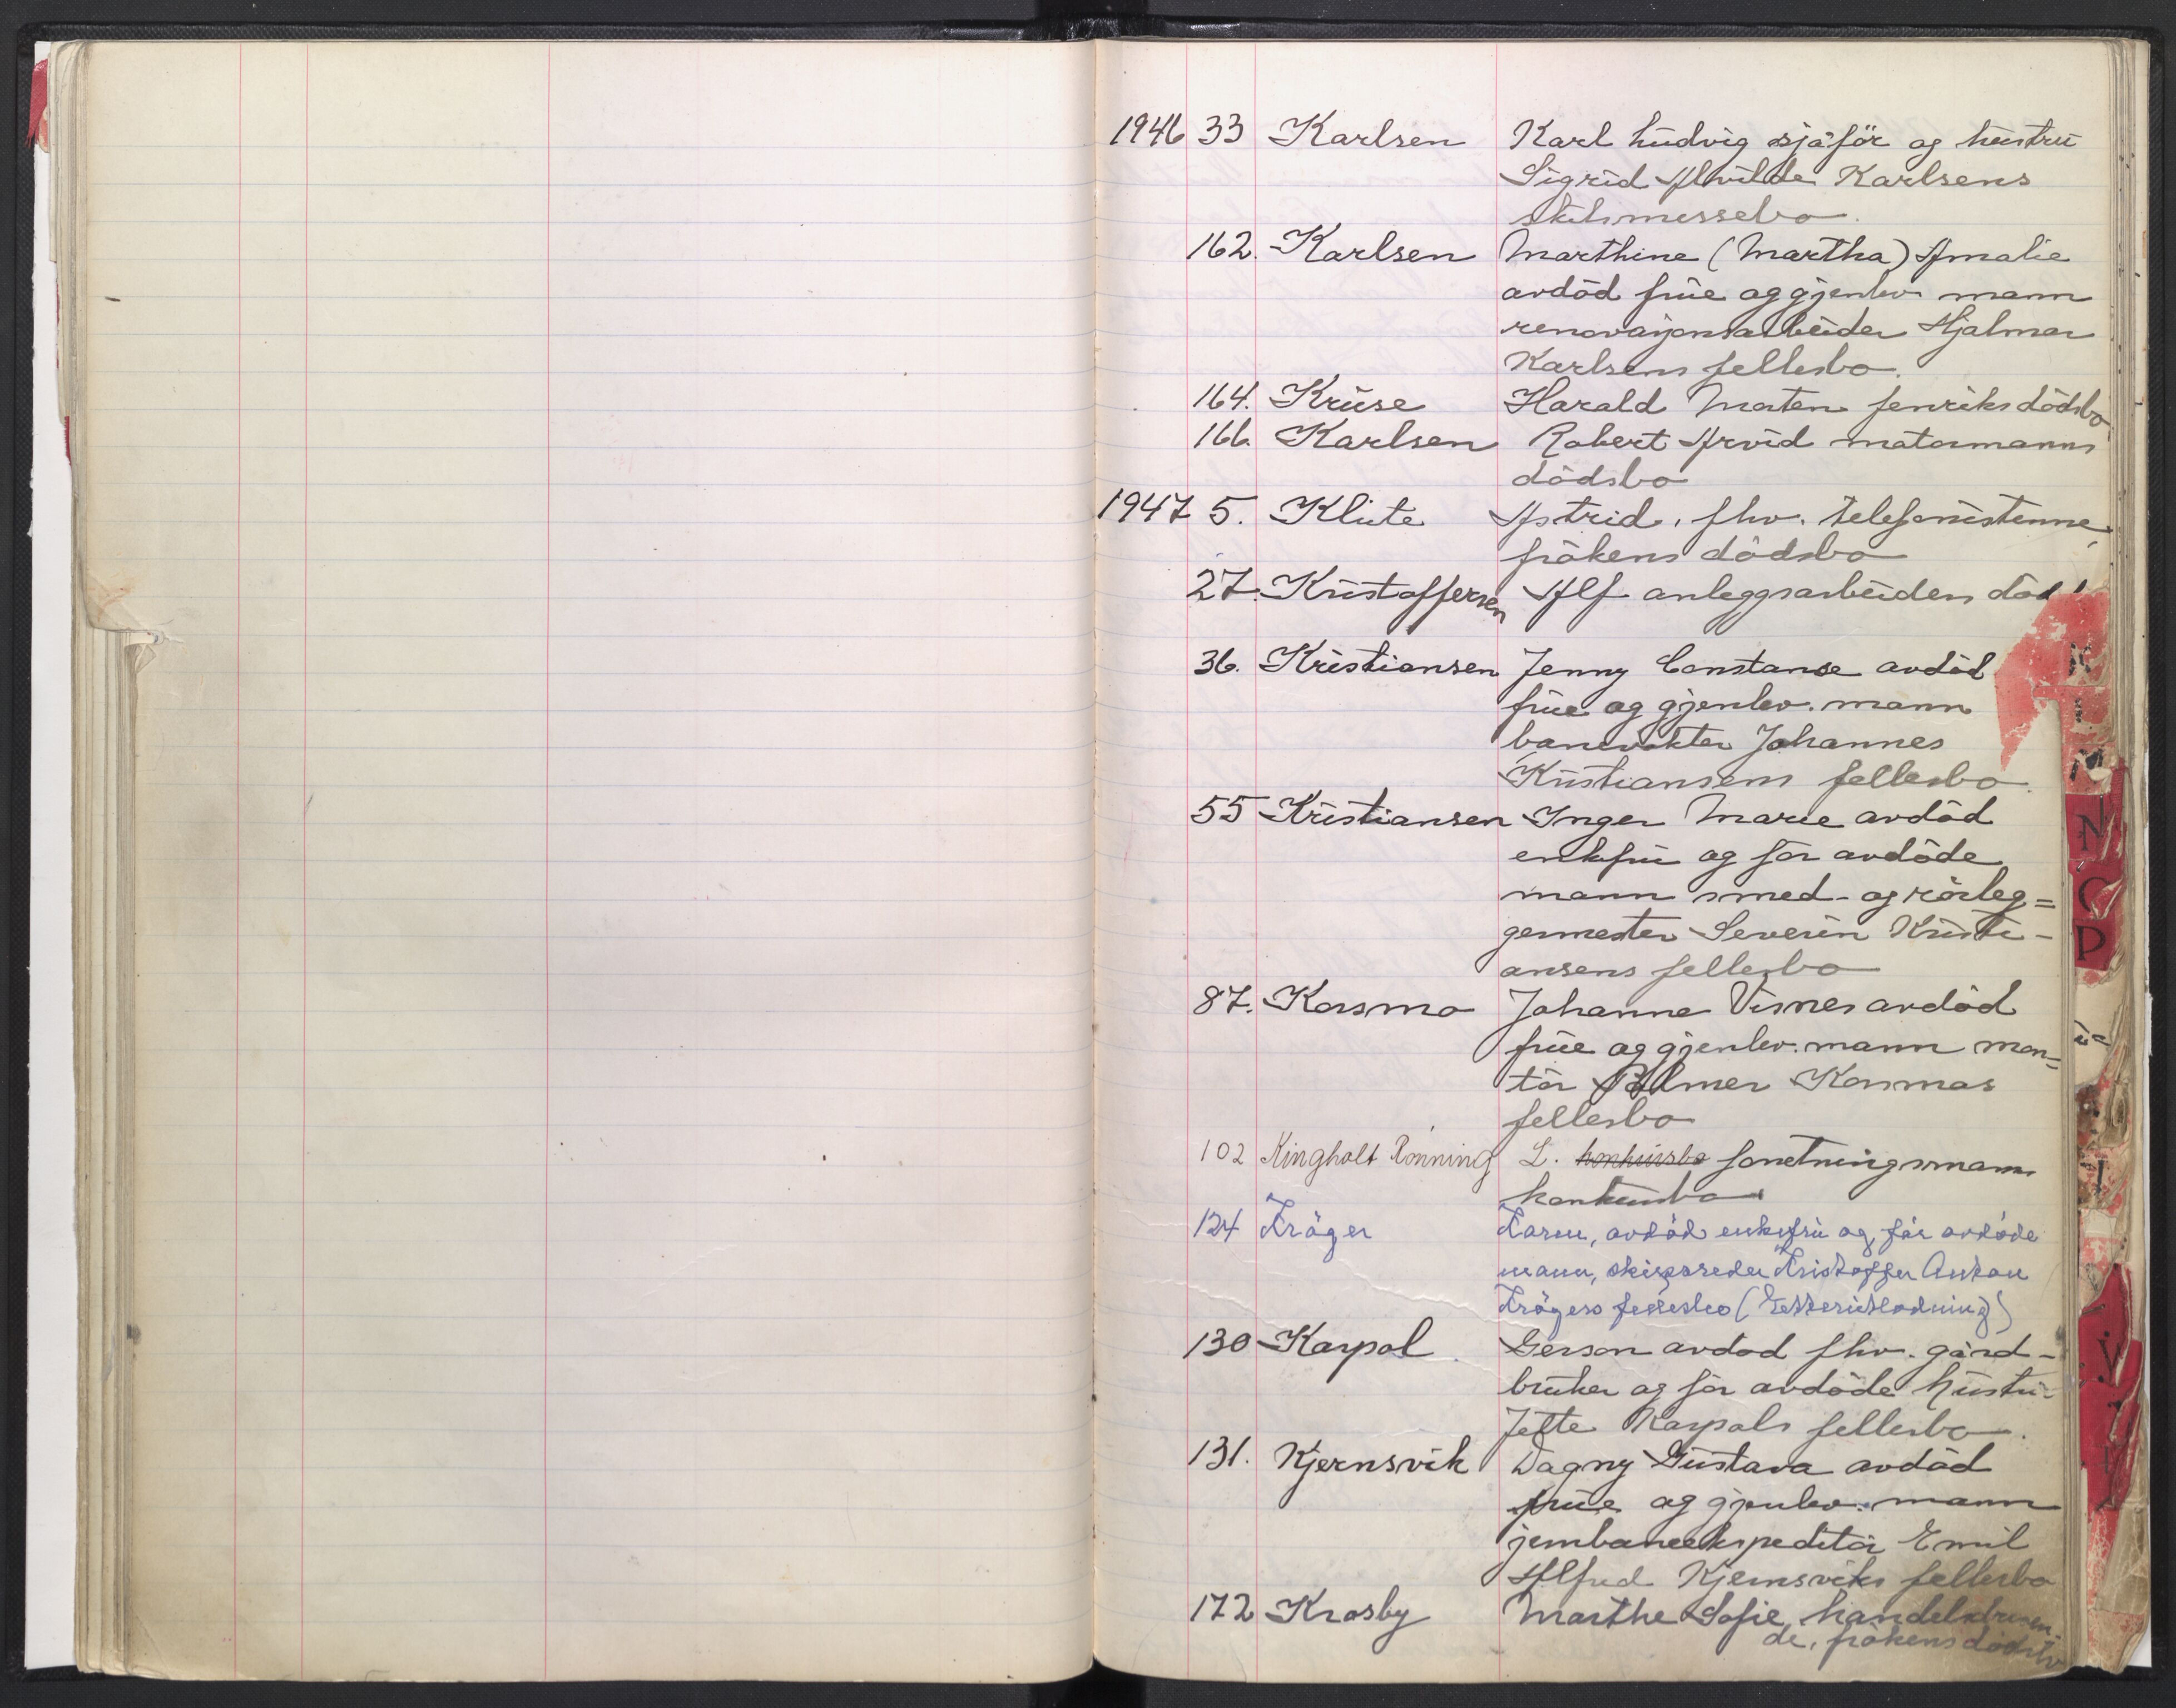 1946 33 Karlsen Karl Ludvig sjåför og hustru
Sigrid Alvilde Karlsens
skilsmissebo.
162. Karlsen Marthine (Martha) Amalie
avdöd frue og gjenlev mann
renovasjonsarbeider Hjalmar
Karlsens fellesbo.
164. Kruse Harald Morten fenriks dödsbo
166. Karlsen Robert Arvid motormanns
dödsbo
1947 5. Klute Astrid, fhv. telefonistinne,
frökens dödsbo
27. Kristoffersen Alf anleggsarbeiders död
36. Kristiansen Jenny Constanse avdöd
frue og gjenlev. mann
banevokter Johannes
Kristiansens fellesbo.
55 Kristiansen Inger Marie avdöd
enkefru og för avdöde
mann smed- og rörleg=
germester Severin Kristi-
ansens fellesbo
87. Kosmo Johanne Visnes avdöd
frue og gjenlev. mann mon=
tör Palmer Kosmos
fellesbo
102 Kingholt Rönning L. konkursbo forretningsmanns
konkursbo
124 Kröger Karen, avdöd enkefru og för avdöde
mann, skipsreder Kristoffer Anton
Krögers fellesbo (Etterutlodning)
130 Karpol Gerson avdöd fhv. gård-
bruker og för avdöde hustru
Jette Karpols fellesbo.
131. Kjernsvik Dagny Gustava avdöd
frue og gjenlev. mann
jernbaneekspeditör Emil
Alfred Kjernsviks fellesbo
172 Krosby Marthe Sofie, handelsdriven-
de, frökens dödsbo
N
O
P
V